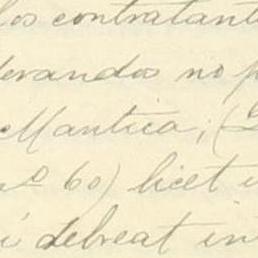 los contratant
derandos no p
Mantica, (L
nº 60) licet i
i debeat in